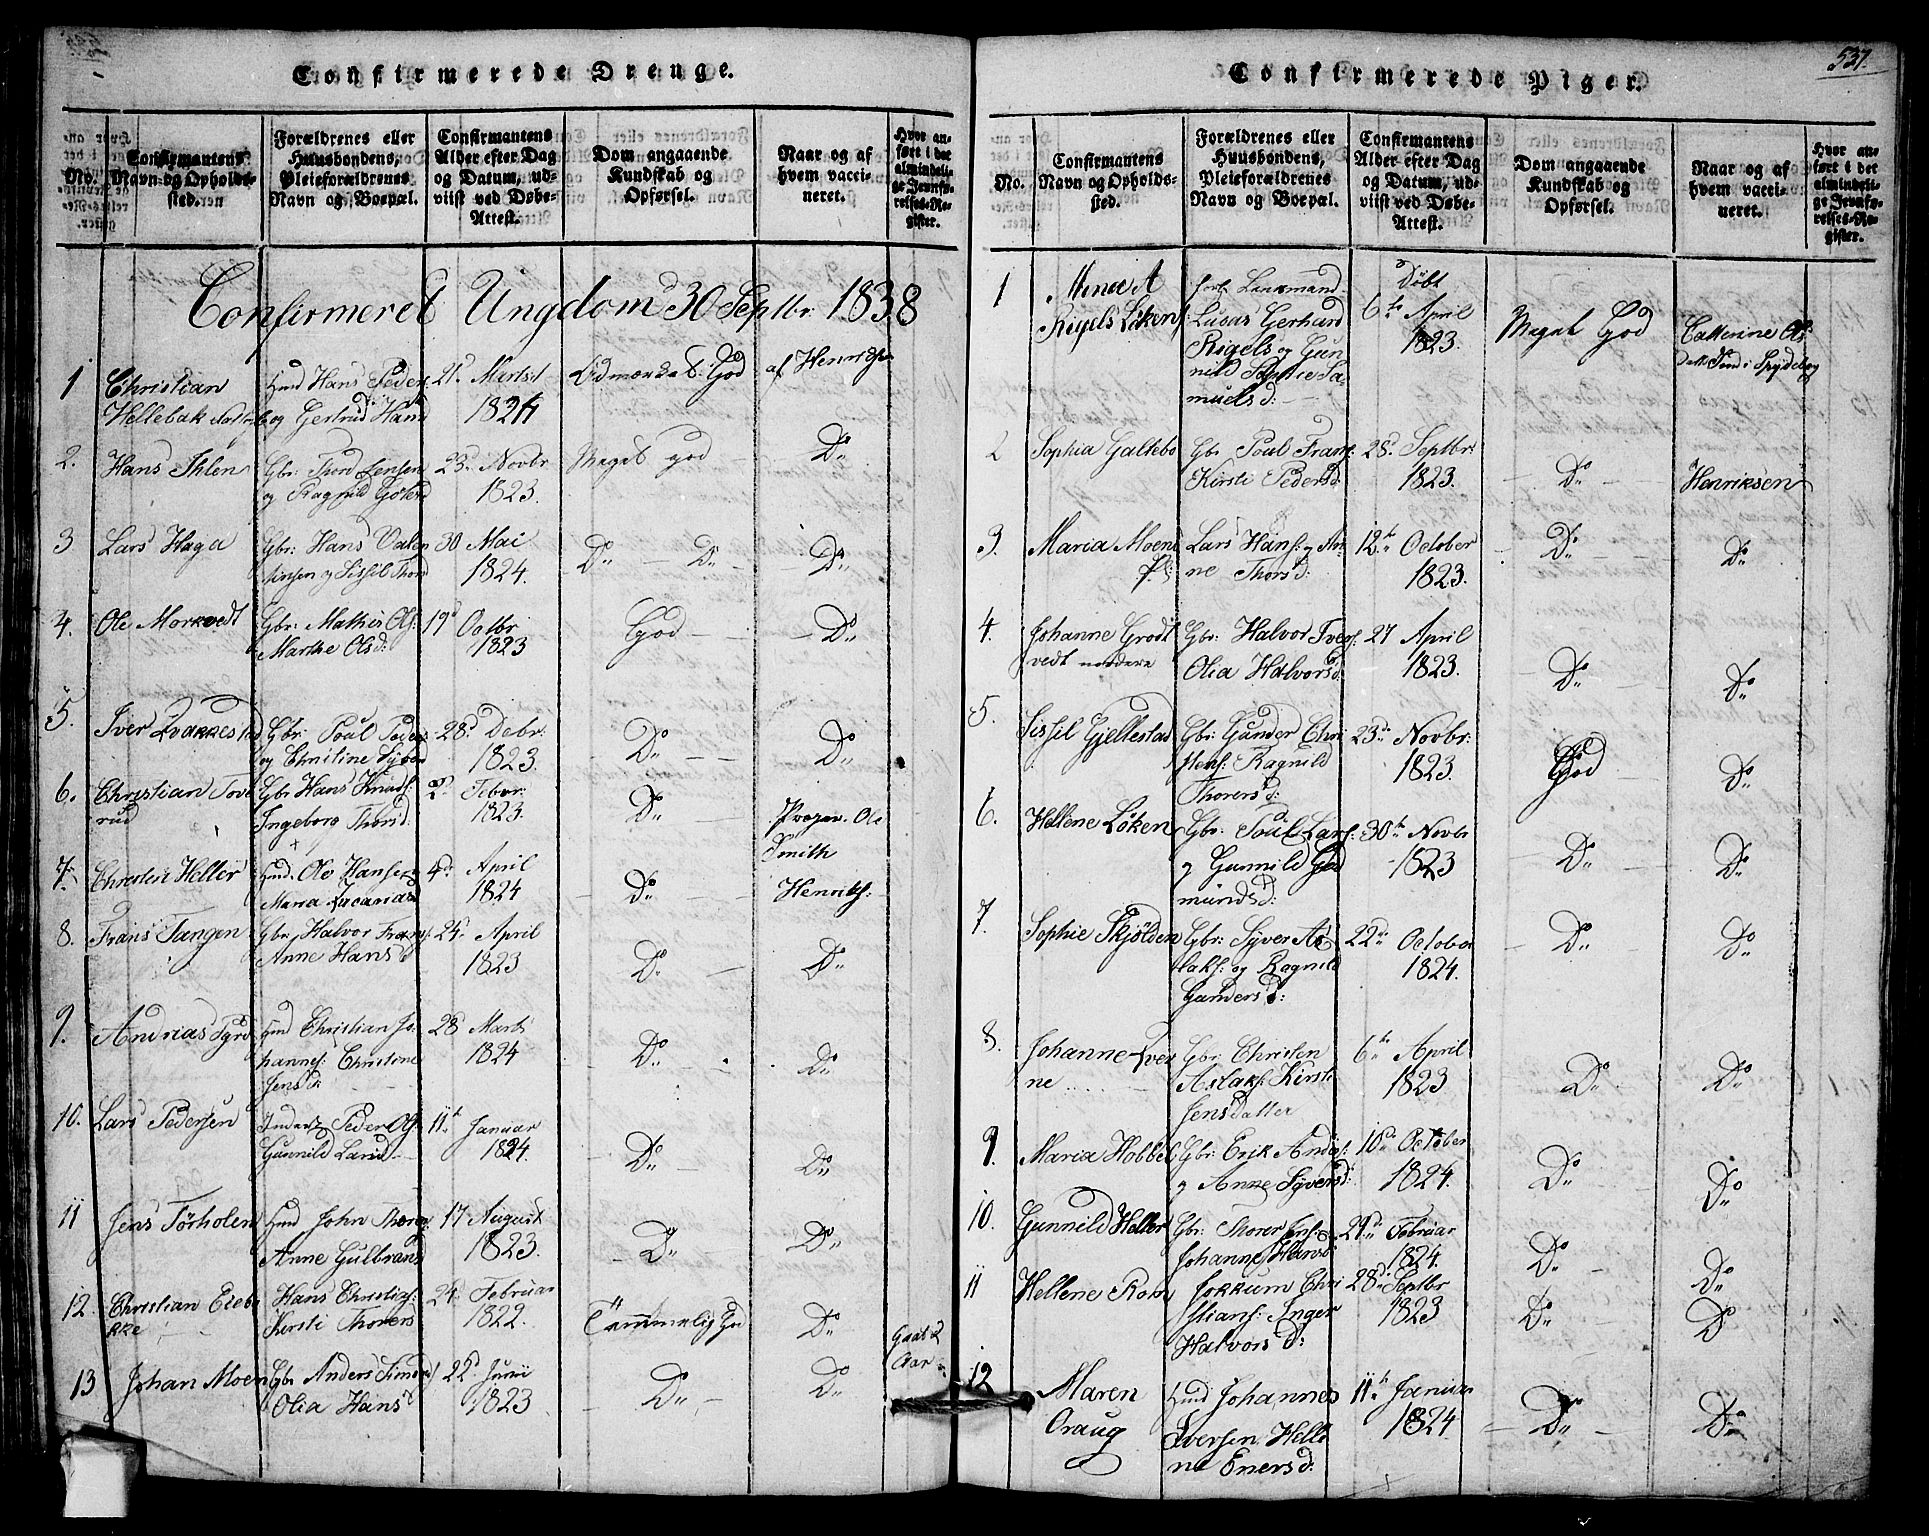 Confirmerede Drenge.
No.
Confirmantens Navn og Opholds-sted.
Forældrenes eller Huusbondens, Pleieforældrenes Navn og Boepæl.
Confirmantens Alder efter Dag og Datum, ud-viist ved Døbe-Attest.
Dom angaaende Kundskab og Opførsel.
Naar og af hvem vacci-neret.
Hvor an-ført i det almindeli-ge Jevnfø-relses-Re-gister.
Confirmeret Ungdom 30 Septbr: 1838
1 Christian Hellebak
Hans Peders og Gertrud Hans
21d Martsii 1824
Udmærket God
af Henriks
2. Hans Ihlen
Gbr: Thord Jensen og Ragnild
23d Novbr 1823.
Meget god
Do
3 Lars Haga
Gbr: Hans Valen tinsen og Sissil Thord
30 Mai 1824.
Do Do
Do
4. Ole Morkvedt
Gbr: Mathis Ols: Marthe Olsd:
19d Octbr 1823
God
Do
5. Iver
Gbr: Poul Peders og Christine
28d Debr: 1823.
Do
Do
6. Christian Tove rud
Gbr Hans Knuds: Ingeborg Thorsd:
2d Febvr: 1823.
Do
Ole Smith
7. Christen Heller
Hmd. Ole Hanse Maria
4d April 1824
Do
Henriks:
8. Frans Tangen
Gbr Halvor Frans: Anne Hansd
24 April 1823
Do
Do
9. Andrias
Hmd Christian Jo hannes: Christine Jensd:
28 Marts 1824
Do
Do
10. Lars Pedersen
Peder Ols Gunnild Larsd
11t Januar 1824.
Do
Do
11 Jens Torholen
Hmd John Anne Gulbrans
17 August 1823.
Do
Do
12. Christian
Hans Christias: Kirsti Thorers
24 Februar 1822.
Temmelig God
Do
Gaat 2 Aar
13 Johan Moen
Gbr Anders Simens Olia Hansd
22d Junii 1823
Do
Do
537.
Confirmerede Piger.
No.
Confirmantens Navn og Opholds-sted.
Forældrenes eller Huusbondens, Pleieforældrenes Navn og Boepæl.
Confirmantens Alder efter Dag og Datum, ud-viist ved Døbe-Attest.
Dom angaaende Kundskab og Opførsel.
Naar og af hvem vacci-neret.
Hvor an-ført i det almindeli-ge Jevnfø-relses-Re-gister.
1 Rigels Løken
Lensmand Lucas Gerhard Rigels og Gun nild Sophie Sa muelsd:
Døbt 6te April 1823.
Meget God
Catterine Ols Datt i Spydeberg
2 Sophia Galtebo
Gbr Poul Frans: Kirsti Pedersd:
28d Septbr: 1823.
Do
Henriksen
3. Maria Moen
Lars Hans: og An ne Thorsd:
12te October 1823.
Do
Do
4. Johanne Grødt vedt nordere
Gbr: Halvor Ivers: Olia Halvorsd:
27 April 1823.
Do
Do
5. Sissil Gjellestad
Gbr: Gunder Chri stens: Ragnild Thorersd:
23de Novbr: 1823.
God
Do
6. Hellene Løken
Gbr: Poul Lars: og Gunnild Gud mundsd:
30te Novbr 1823
Do
Do
7. Sophie Skjølden
Gbr: Syver As laks: og Ragnild Gundersd:
22de October 1824.
Do
Do
8. Johanne
Gbr: Christen Aslaks: Kirsti Jensdatter
6te April 1823
Do
Do
9. Maria Hobbel
Gbr: Erik Anders: og Anne Syversd:
10de October 1824.
Do
Do
10. Gunnild Heller
Gbr: Thorer Johanne Hansd
29de Februar 1824.
Do
Do
11 Hellene
Jokkum Chri stians: Inger Halvorsd:
28d: Septbr 1823
Do
Do
12 Maren Oraug
Hmd Johannes Iversen, Helle ne Enersd:
11te Januar 1824
Do
Do